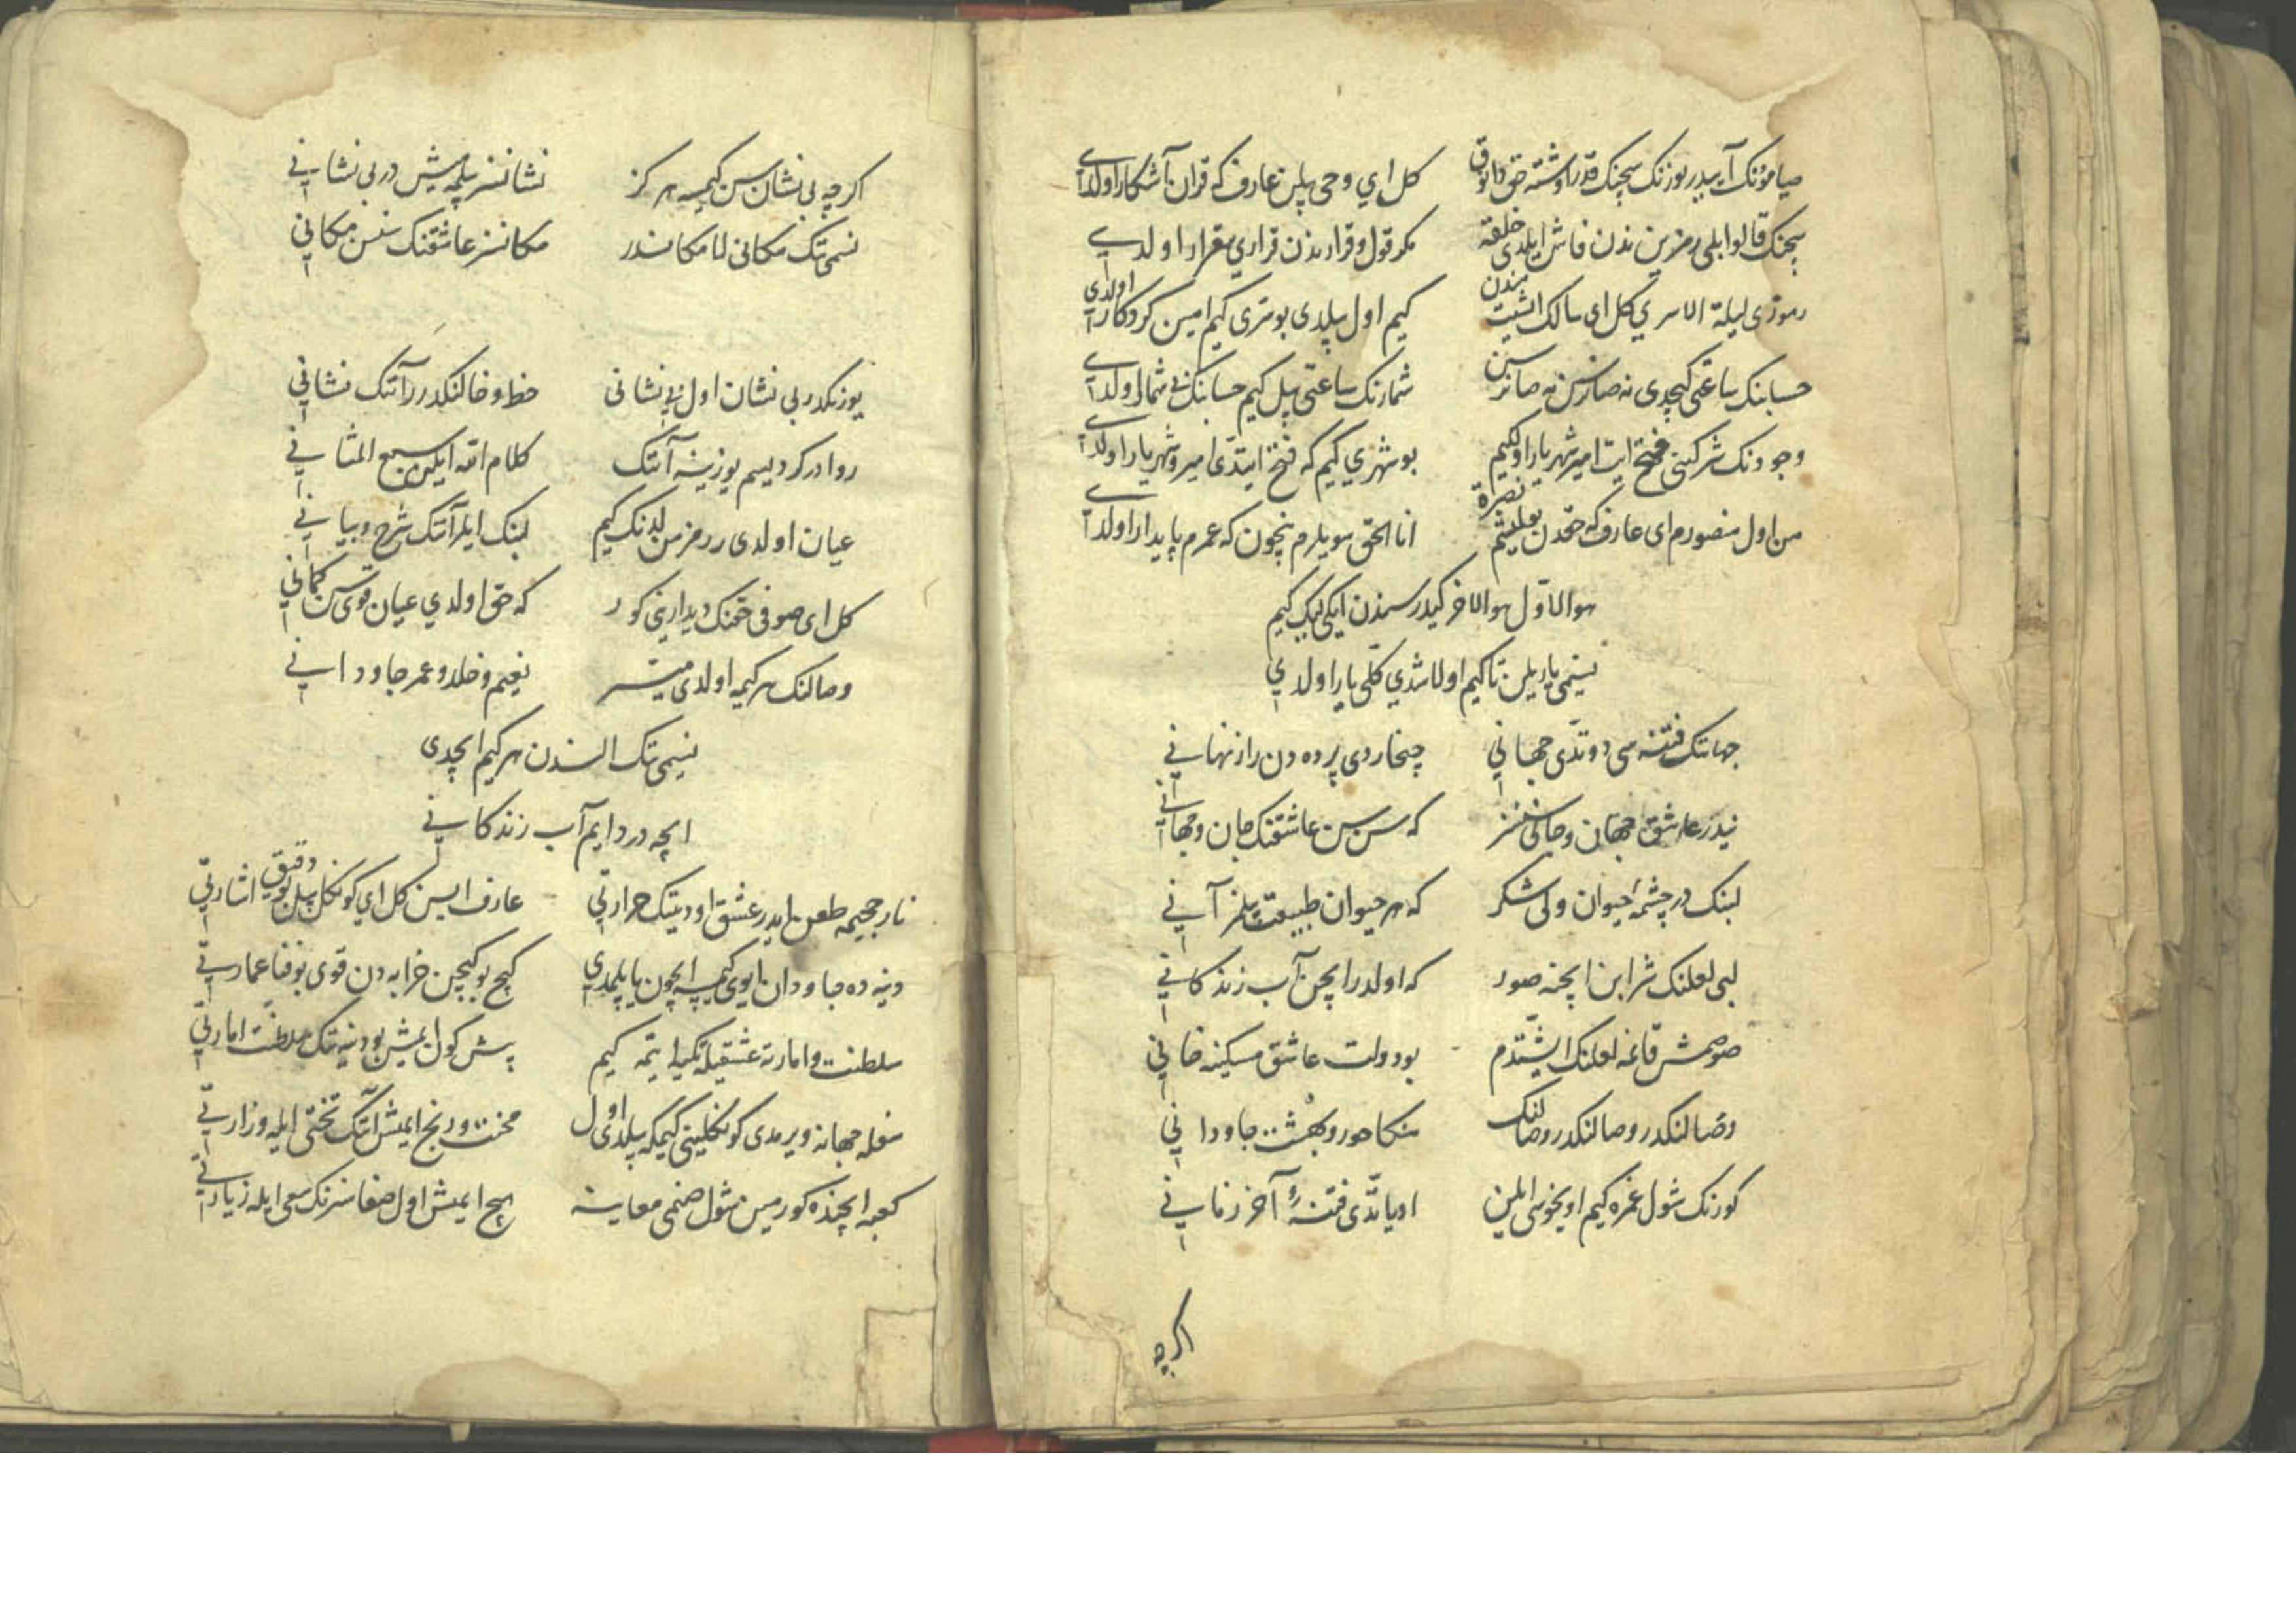 صیامؤنک آییدر یوزنک سچنک قدر اوشته حق دانوق کل ای وحی بیلن عارف که قران آشکارا اولدی
سچنک قالوا بلی رمزین ندن فاش ایلدی خلقه مکر قول و قرارندن قراری بیقرار اولدی
رموزی لیلة الاسری کل ای سالک ایشیت مندن کیم اول بیلدی بو سری کیم امین کردکار اولدی
حسابنک ساعتی کیچدی نه صانرسن نه صانرسن شمارنک ساعتی بیل کیم حسابنک بی شمار اولدی
وجودنک شرکنی فتح ایت امیر شهریار اولکیم بو شهری کیم که فتح ایتدی امیر و شهریار اولدی
من اول منصورم ای عارف که حقدن بولمیشم نصرة انا الحق سویلرم نچون که عمرم پایدار اولدی
هو الاول هو الاخر کیدر سندن ایکیلیک کیم
نسیمی یار ایلن تا کیم اولاشدی کلی یار اولدی
جهانک فتنه سی دوتدی جهانی چیخاردی پرده دن راز نهانی
نیدر عاشق جهان و جانی سنسز که سن سن عاشقنک جان و جهانی
لبنک در چشمۀ حیوان ولی شکر که هر حیوان طبیعت بیلمز آنی
لبی لعلنک شرابن ایچنه صور که اولدر ایچن آب زندکانی
صوصمش قانمه لعلنک ایشتدم بو دولت عاشق مسکینه قانی
وصالنکدر وصالنکدر وصالنک منکا حور و بهشت جاودانی
کوزنک شول غمزه کیم اویخوسی ایلن اویاتدی فتنۀ آخر زمانی
اکرچه
اکرچه بی نشان سن کیمسه هرکز نشانسز بیلمه میش در بی نشانی
نسیمی تک مکانی لا مکاندر مکانسز عاشقنک سنسن مکانی
یوزنکدر بی نشان اول بی نشانی خط و خالنکدرر آنک نشانی
روادر کر دیسم یوزینه آنک کلام الله ایلن سبع المثانی
عیان اولدی رمز من لدنک کیم لبنک ایلر آنک شرح و بیانی
کل ای صوفی حقنک دیدارینی کور که حق اولدی عیان قوی سن کمانی
وصالنک هر کیمه اولدی میسر نعیم و خلد و عمر جاودانی
نسیمی تک الندن هر کیم ایچدی
ایچه دردایم آب زندکانی
نار جحیمه طعن ایدر عشق اودینک حرارتی عارف ایسن کل ای کونکل بیل بو دقیق اشارتی
دنیه ده جاودان ایوی کیمسه ایچون یاپیلمدی کیچ بو کیچن خرابه دن قوی بو فنا عمارتی
سلطنت و امارته عشقیله تکیه ایتمه کیم بش کون ایمیش بو دنیه نک سلطنت امارتی
سفله جهانه ویرمدی کونکلینی کیم که بیلدی اول محنت و رنج ایمیش آنک تختی ایله وزارتی
کعبه ایچنده کورمین شول صنمی معاینه هیچ ایمیش اول صفاسزنک سعی ایله زیارتی